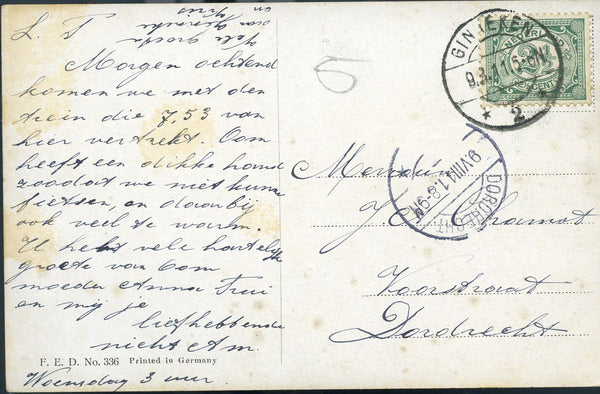 L. T.
vele groeten
aan
en
Morgen ochtend
komen we met den
trein die 7,53 van
hier vertrekt. Oom
heeft een dikke hand
zoodat we niet kunne
fietsen, en daarbij
ook veel te warm.
U hebt vele hartelijke
groete van Oom
moeder Anna Trui
en mij je
liefhebbende
nicht Am.
Woensdag 3 uur.
F. E. D. No. 336 Printed in Germany
GINNEKEN
2
NEDERLAND
2½
CENT
DORDRECHT
9.VIII.11.8-9N
J.
Voorstraat
Dordrecht